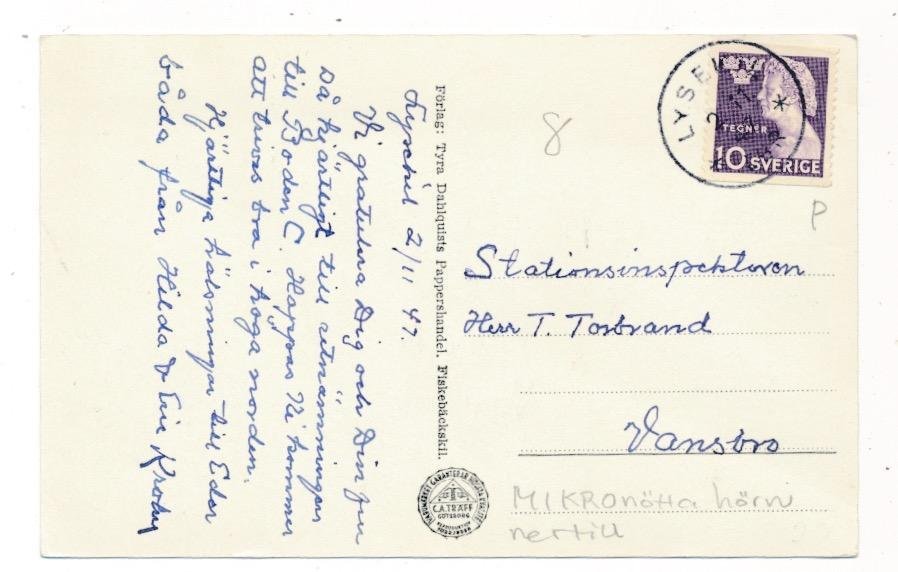 Lysekil 2/11 47.
Vi gratulera Dig och Din fru
så hjärtligt till utnämningen
till Boden C. Hoppas Ni kommer
att trivas bra i höga norden.
Hjärtliga hälsningar till Eder
båda från Hilda & Eric
Förlag: Tyra Dahlquists Pappershandel. Fiskebäckskil.
8
LYSEKIL
2 11
TEGNÉR
10 SVERIGE
P
Stationsinspektoren
Herr T. Torbrand
Vansbro
C.A. TRÄFF
GÖTEBORG
MIKROnötta hörn
nertill